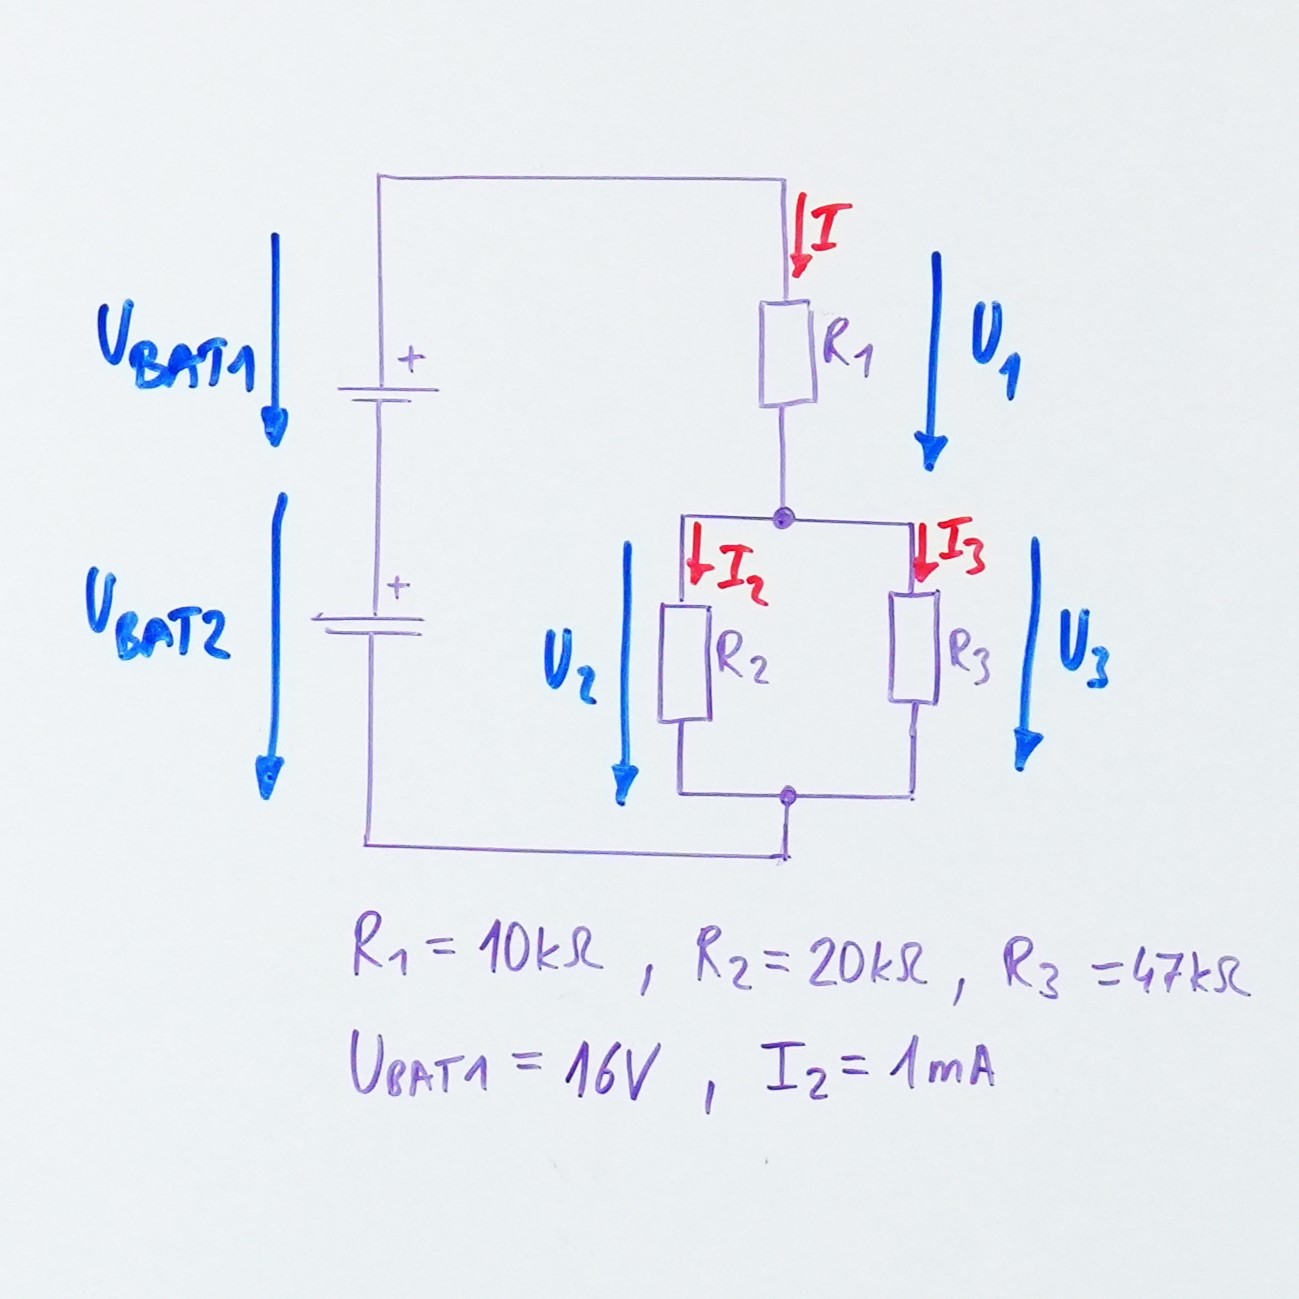 I
U₁
R₁
+
U_BAT1
I₂
I₃
+
U_BAT2
U₂
R₂
R₃
U₃
R₁ = 10kΩ , R₂ = 20kΩ , R₃ = 47kΩ
U_BAT1 = 16V , I₂ = 1mA